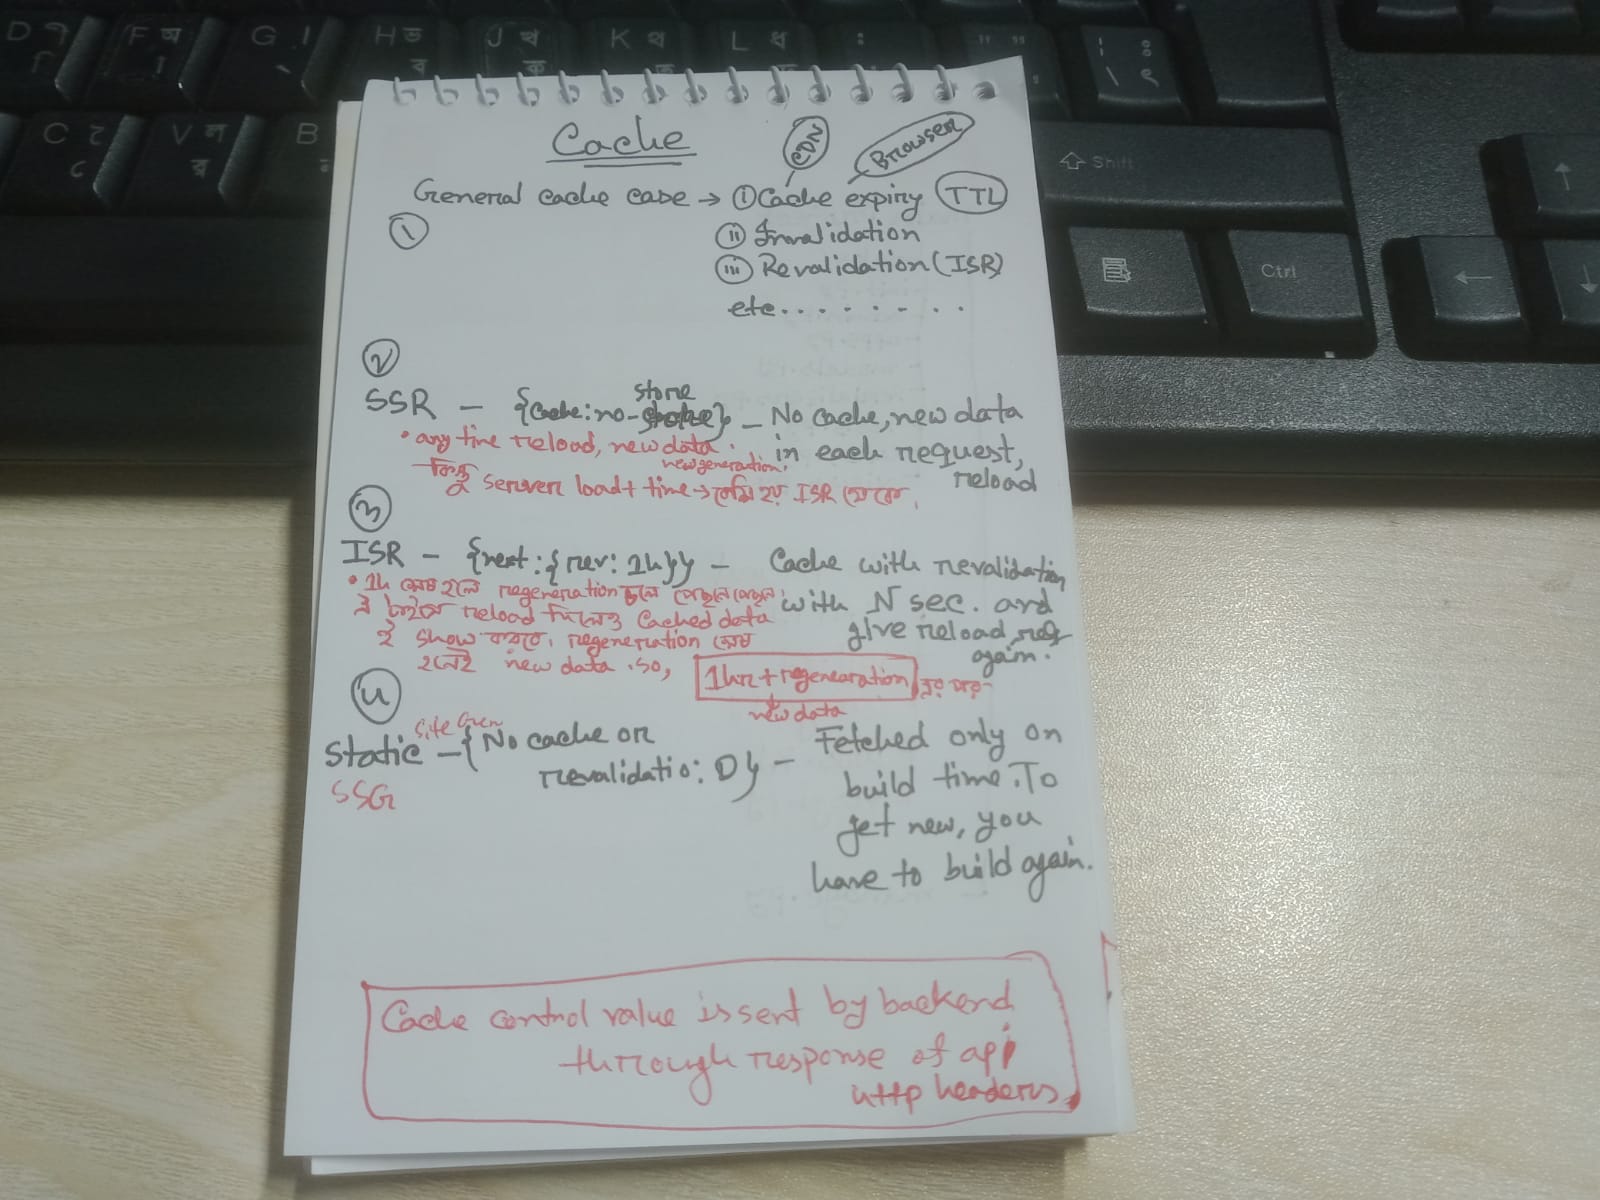 Cache
CDN
Browser
General cache case → (i) Cache expiry (TTL)
(1)
(ii) Invalidation
(iii) Revalidation (ISR)
etc.........
(2)
store
SSR - {cache: no-} - No cache, new data
in each request,
reload
• any time reload, new data.
new generation.
কিন্তু server load + time → বেশি হয় ISR থেকে.
(3)
ISR - {next: {rev: 1h}} - Cache with revalidation
with N sec. and
give reload, req
again.
• 1h শেষ হলে regeneration চলে
reload দিলেও Cached data
ই show করবে। regeneration শেষ
হলেই new data. so, 1hr + regenearation এর পর
new data
(4)
Site Gen
Static - {No cache or
revalidatio: 0} -
SSG
Fetched only on
build time. To
get new, you
have to build again.
Cache control value is sent by backend
through response of api
http headers